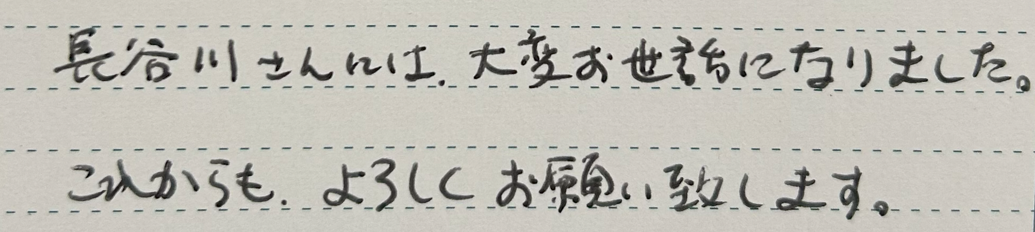 長谷川さんには、大変お世話になりました。
これからも、よろしくお願い致します。